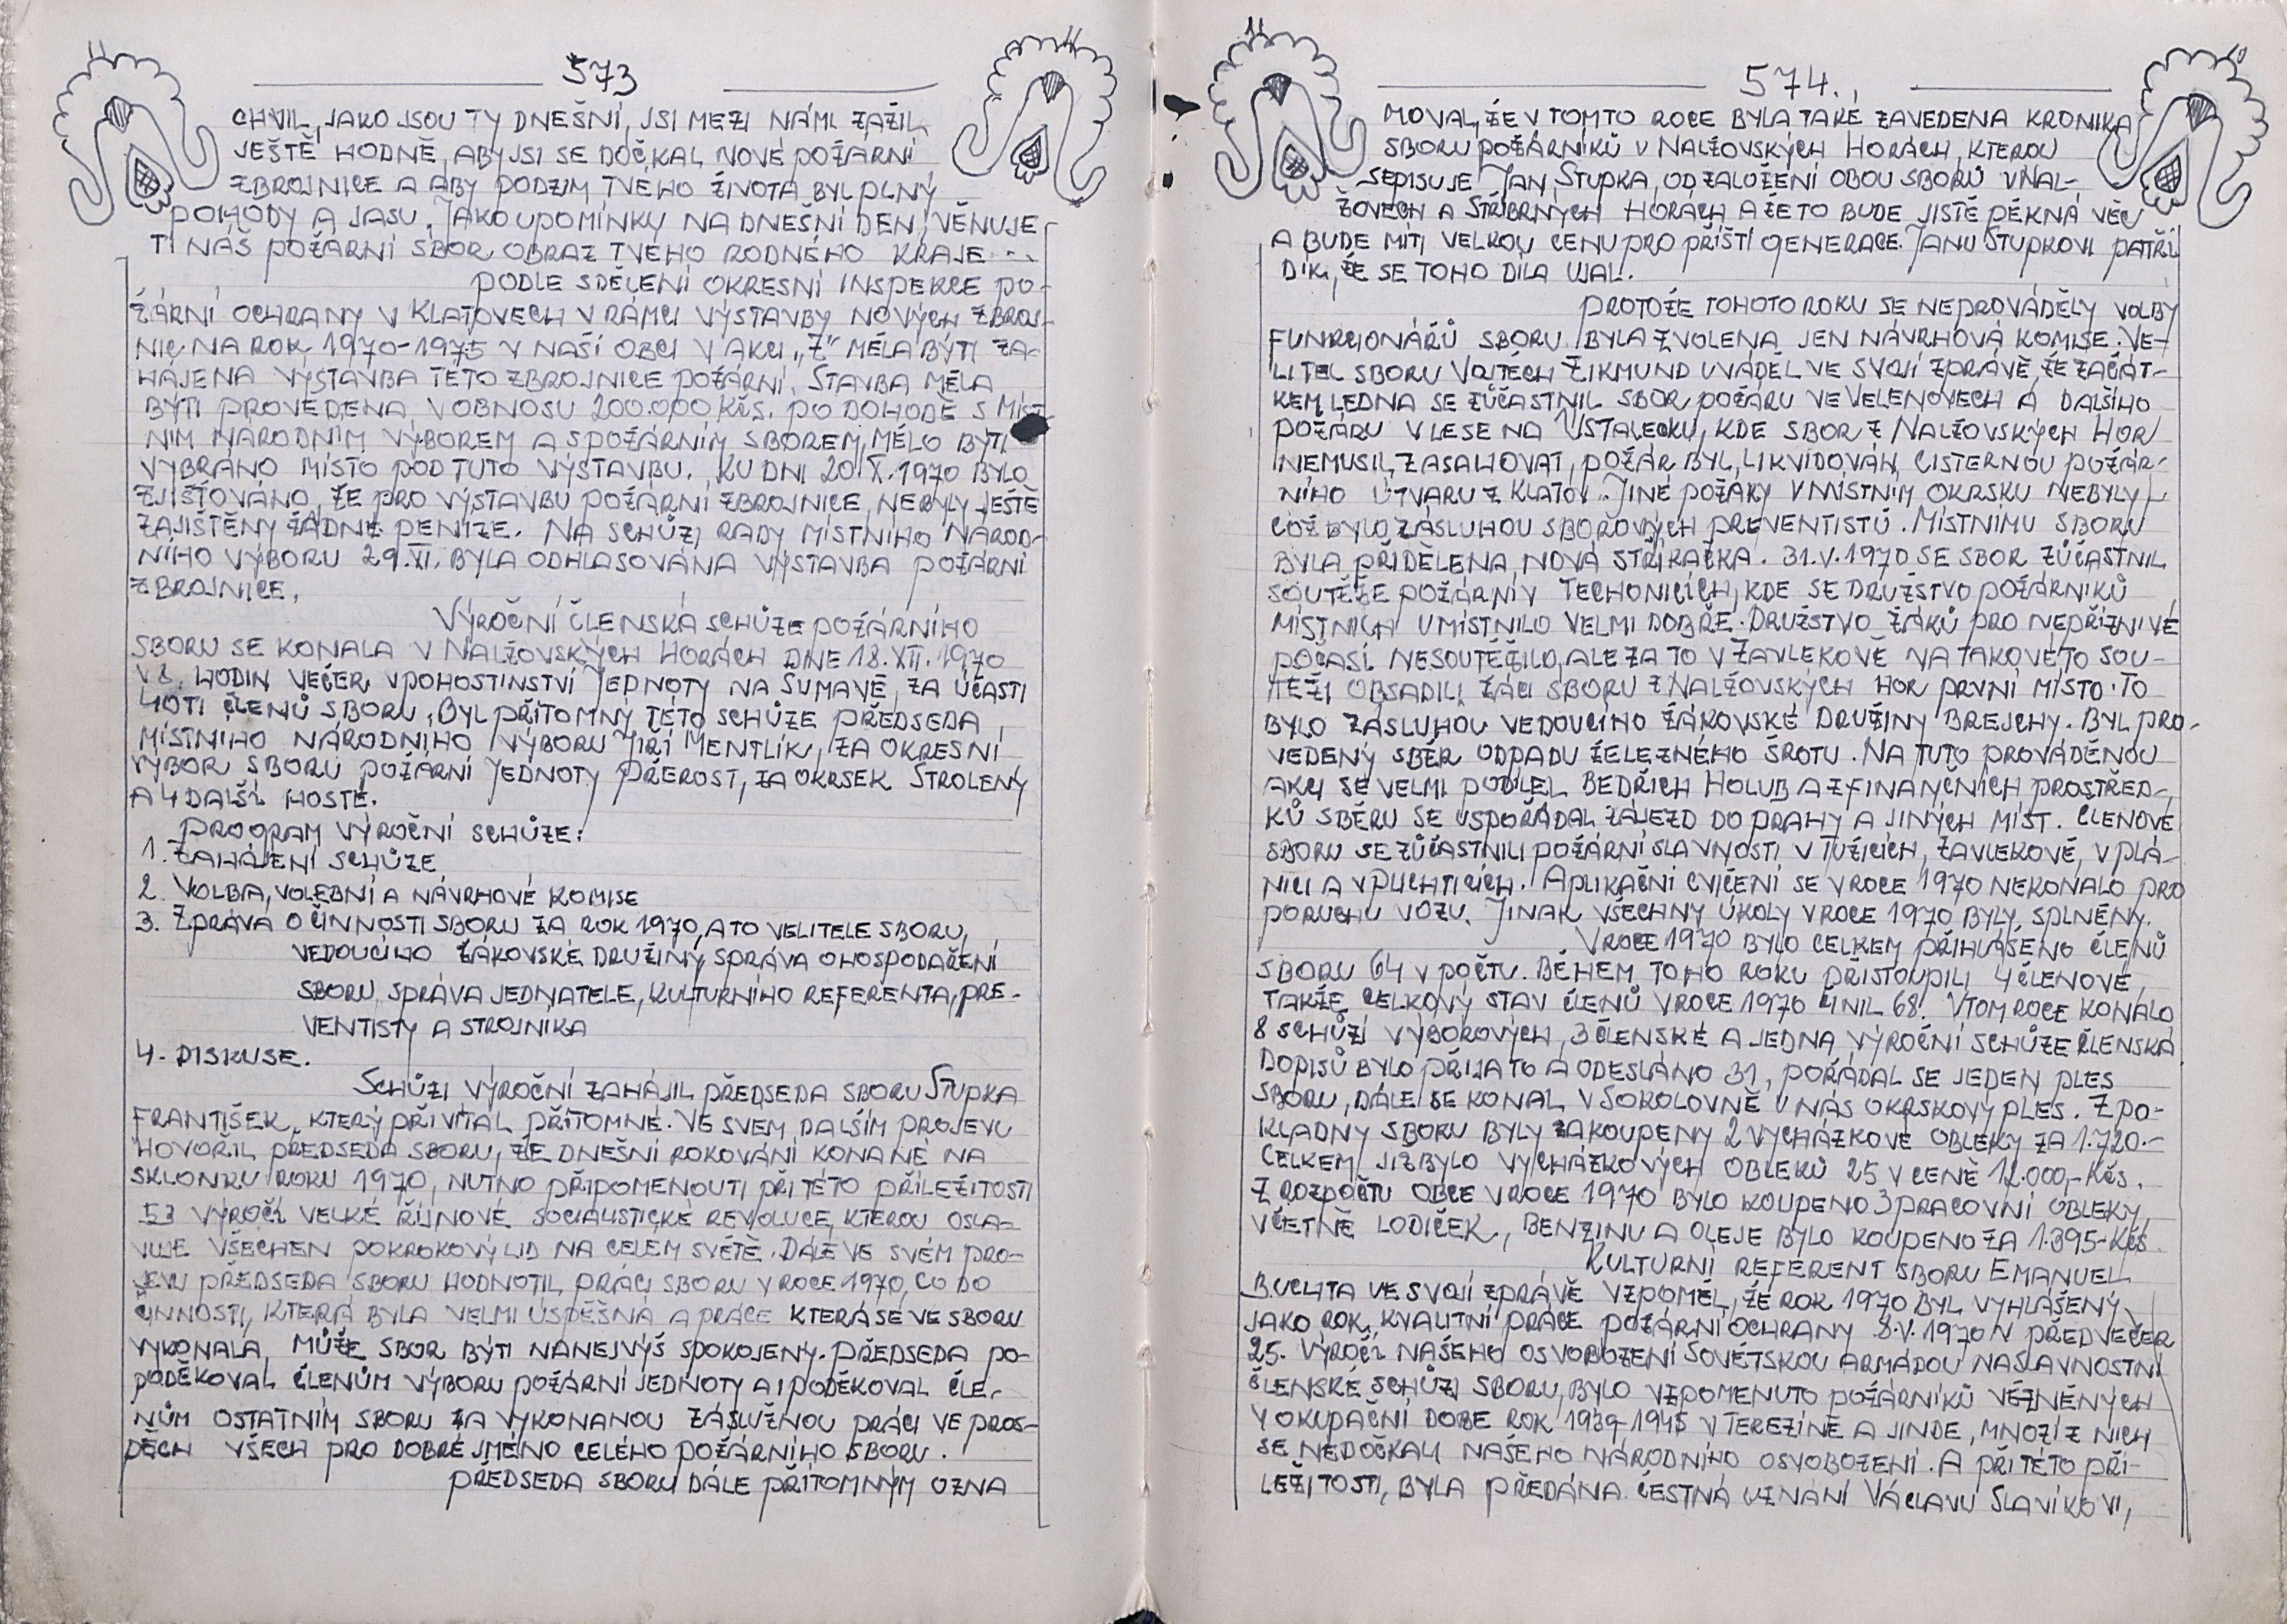 573
CHVIL, JAKO JSOU TY DNEŠNÍ, JSI MEZI NÁMI ZAŽIL
JEŠTĚ HODNĚ, ABY JSI SE DOČKAL NOVÉ POŽÁRNÍ
ZBROJNICE A ABY PODZIM TVÉHO ŽIVOTA BYL PLNÝ
POHODY A JASU. JAKO UPOMÍNKU NA DNEŠNÍ DEN, VĚNUJE
TI NÁŠ POŽÁRNÍ SBOR OBRAZ TVÉHO RODNÉHO KRAJE...
PODLE SDĚLENÍ OKRESNÍ INSPEKCE PO-
ŽÁRNÍ OCHRANY V KLATOVECH V RÁMCI VÝSTAVBY NOVÝCH ZBROJ-
NIC NA ROK 1970-1975 V NAŠÍ OBCI V AKCI „Z" MĚLA BÝTI ZA-
HÁJENA VÝSTAVBA TÉTO ZBROJNICE POŽÁRNÍ. STAVBA MĚLA
BÝTI PROVEDENA V OBNOSU 200.000 Kčs. PO DOHODĚ S MÍST-
NÍM NÁRODNÍM VÝBOREM A S POŽÁRNÍM SBOREM, MĚLO BÝTI
VYBRÁNO MÍSTO POD TUTO VÝSTAVBU. KU DNI 20.X.1970 BYLO
ZJIŠŤOVÁNO, ŽE PRO VÝSTAVBU POŽÁRNÍ ZBROJNICE, NEBYLY JEŠTĚ
ZAJIŠTĚNY ŽÁDNÉ PENÍZE. NA SCHŮZI RADY MÍSTNÍHO NÁROD-
NÍHO VÝBORU 29.XI. BYLA ODHLASOVÁNA VÝSTAVBA POŽÁRNÍ
ZBROJNICE,
VÝROČNÍ ČLENSKÁ SCHŮZE POŽÁRNÍHO
SBORU SE KONALA V NALŽOVSKÝCH HORÁCH DNE 18.XII.1970
V 8. HODIN VEČER V POHOSTINSTVÍ JEDNOTY NA ŠUMAVĚ, ZA ÚČASTI
40TI ČLENŮ SBORU, BYL PŘÍTOMNÝ TÉTO SCHŮZE PŘEDSEDA
MÍSTNÍHO NÁRODNÍHO VÝBORU JIŘÍ MENTLÍK, ZA OKRESNÍ
VÝBOR SBORU POŽÁRNÍ JEDNOTY PŘEROST, ZA OKRSEK ŠTROLENÝ
A 4 DALŠÍ HOSTÉ.
PROGRAM VÝROČNÍ SCHŮZE:
1. ZAHÁJENÍ SCHŮZE
2. VOLBA, VOLEBNÍ A NÁVRHOVÉ KOMISE
3. ZPRÁVA O ČINNOSTI SBORU ZA ROK 1970, A TO VELITELE SBORU,
VEDOUCÍHO ŽÁKOVSKÉ DRUŽINY, SPRÁVA O HOSPODAŘENÍ
SBORU, SPRÁVA JEDNATELE, KULTURNÍHO REFERENTA, PRE-
VENTISTY A STROJNÍKA
4. DISKUSE.
SCHŮZI VÝROČNÍ ZAHÁJIL PŘEDSEDA SBORU STUPKA
FRANTIŠEK, KTERÝ PŘIVÍTAL PŘÍTOMNÉ. VE SVÉM DALŠÍM PROJEVU
HOVOŘIL PŘEDSEDA SBORU, ŽE DNEŠNÍ ROKOVÁNÍ KONANÉ NA
SKLONKU ROKU 1970, NUTNO PŘIPOMENOUTI PŘI TÉTO PŘÍLEŽITOSTI
53 VÝROČÍ VELKÉ ŘÍJNOVÉ SOCIALISTICKÉ REVOLUCE, KTEROU OSLA-
VUJE VŠECHEN POKROKOVÝ LID NA CELÉM SVĚTĚ. DÁLE VE SVÉM PRO-
JEVU PŘEDSEDA SBORU HODNOTIL PRÁCI SBORU V ROCE 1970, CO DO
ČINNOSTI, KTERÁ BYLA VELMI ÚSPĚŠNÁ A PRÁCE KTERÁ SE VE SBORU
VYKONALA, MŮŽE SBOR BÝTI NANEJVÝŠ SPOKOJENÝ. PŘEDSEDA PO-
PODĚKOVAL ČLENŮM VÝBORU POŽÁRNÍ JEDNOTY A I PODĚKOVAL ČLE-
NŮM OSTATNÍM SBORU ZA VYKONANOU ZÁSLUŽNOU PRÁCI VE PROS-
PĚCH VŠECH PRO DOBRÉ JMÉNO CELÉHO POŽÁRNÍHO SBORU.
PŘEDSEDA SBORU DÁLE PŘÍTOMNÝM OZNA
574.
MOVAL, ŽE V TOMTO ROCE BYLA TAKÉ ZAVEDENA KRONIKA
SBORU POŽÁRNÍKŮ V NALŽOVSKÝCH HORÁCH, KTEROU
SEPISUJE JAN STUPKA, OD ZALOŽENÍ OBOU SBORŮ V NAL-
ŽOVECH A STŘÍBRNÝCH HORÁCH A ŽE TO BUDE JISTĚ PĚKNÁ VĚC
A BUDE MÍTI VELKOU CENU PRO PŘÍŠTÍ GENERACE. JANU STUPKOVI PATŘÍ
DÍK, ŽE SE TOHO DÍLA UJAL.
PROTOŽE TOHOTO ROKU SE NEPROVÁDĚLY VOLBY
FUNKCIONÁŘŮ SBORU BYLA ZVOLENA JEN NÁVRHOVÁ KOMISE. VE-
LITEL SBORU VOJTĚCH ZIKMUND UVÁDĚL VE SVOJÍ ZPRÁVĚ, ŽE ZAČÁT-
KEM LEDNA SE ZŮČASTNIL SBOR POŽÁRU VE VELENOVECH A DALŠÍHO
POŽÁRU V LESE NA ÚSTALECKU, KDE SBOR Z NALŽOVSKÝCH HOR
NEMUSIL ZASAHOVAT, POŽÁR BYL LIKVIDOVÁN CISTERNOU POŽÁR-
NÍHO ÚTVARU Z KLATOV. JINÉ POŽÁRY V MÍSTNÍM OKRSKU NEBYLY,
COŽ BYLO ZÁSLUHOU SBOROVÝCH PREVENTISTŮ. MÍSTNÍMU SBORU
BYLA PŘIDĚLENA NOVÁ STŘÍKAČKA. 31.V.1970 SE SBOR ZŮČASTNIL
SOUTĚŽE POŽÁRNÍ V TECHONICÍCH, KDE SE DRUŽSTVO POŽÁRNIKŮ
MÍSTNÍCH UMÍSTNILO VELMI DOBŘE. DRUŽSTVO ŽÁKŮ PRO NEPŘÍZNIVÉ
POČASÍ NESOUTĚŽILO, ALE ZA TO V ZAVLEKOVĚ NA TAKOVÉTO SOU-
TĚŽI OBSADILI ŽÁCI SBORU Z NALŽOVSKÝCH HOR PRVNÍ MÍSTO. TO
BYLO ZÁSLUHOU VEDOUCÍHO ŽÁKOVSKÉ DRUŽINY BREJCHY. BYL PRO-
VEDENÝ SBĚR ODPADU ŽELEZNÉHO ŠROTU. NA TUTO PROVÁDĚNOU
AKCI SE VELMI PODÍLEL BEDŘICH HOLUB A Z FINANČNÍCH PROSTŘED-
KŮ SBĚRU SE USPOŘÁDAL ZÁJEZD DO PRAHY A JINÝCH MÍST. ČLENOVÉ
SBORU SE ZŮČASTNILI POŽÁRNÍ SLAVNOSTI V TUŽICÍCH, ZAVLEKOVĚ, V PLÁ-
NICI A V PLICHTICÍCH. APLIKAČNÍ CVIČENÍ SE V ROCE 1970 NEKONALO PRO
PORUCHU VOZU. JINAK VŠECHNY ÚKOLY V ROCE 1970 BYLY SPLNĚNY.
V ROCE 1970 BYLO CELKEM PŘIHLÁŠENO ČLENŮ
SBORU 64 V POČTU. BĚHEM TOHO ROKU PŘISTOUPILI 4 ČLENOVÉ,
TAKŽE CELKOVÝ STAV ČLENŮ V ROCE 1970 ČINIL 68. V TOM ROCE KONALO
8 SCHŮZÍ VÝBOROVÝCH, 3 ČLENSKÉ A JEDNA VÝROČNÍ SCHŮZE ČLENSKÁ
DOPISŮ BYLO PŘIJATO A ODESLÁNO 31, POŘÁDAL SE JEDEN PLES
SBORU, DÁLE SE KONAL V SOKOLOVNĚ U NÁS OKRSKOVÝ PLES. Z PO-
KLADNY SBORU BYLY ZAKOUPENY 2 VYCHÁZKOVÉ OBLEKY ZA 1.720.-
CELKEM JIŽ BYLO VYCHÁZKOVÝCH OBLEKŮ 25 V CENĚ 12.000,-Kčs.
Z ROZPOČTU OBCE V ROCE 1970 BYLO KOUPENO 3 PRACOVNÍ OBLEKY,
VČETNĚ LODIČEK., BENZINU A OLEJE BYLO KOUPENO ZA 1.395-Kčs.
KULTURNÍ REFERENT SBORU EMANUEL
BUCHTA VE SVOJÍ ZPRÁVĚ VZPOMĚL, ŽE ROK 1970 BYL VYHLÁŠENÝ
JAKO ROK KVALITNÍ PRÁCE POŽÁRNÍ OCHRANY. 8.V.1970 V PŘEDVEČER
25. VÝROČÍ NAŠEHO OSVOBOZENÍ SOVĚTSKOU ARMÁDOU NA SLAVNOSTNÍ
ČLENSKÉ SCHŮZI SBORU, BYLO VZPOMENUTO POŽÁRNÍKŮ VĚZNĚNÝCH
V OKUPAČNÍ DOBE ROK 1939-1945 V TEREZÍNĚ A JINDE, MNOZÍ Z NICH
SE NEDOČKALI NAŠEHO NÁRODNÍHO OSVOBOZENÍ. A PŘI TÉTO PŘÍ-
LEŽITOSTI, BYLA PŘEDÁNA ČESTNÁ UZNÁNÍ VÁCLAVU SLAVÍKOVI,